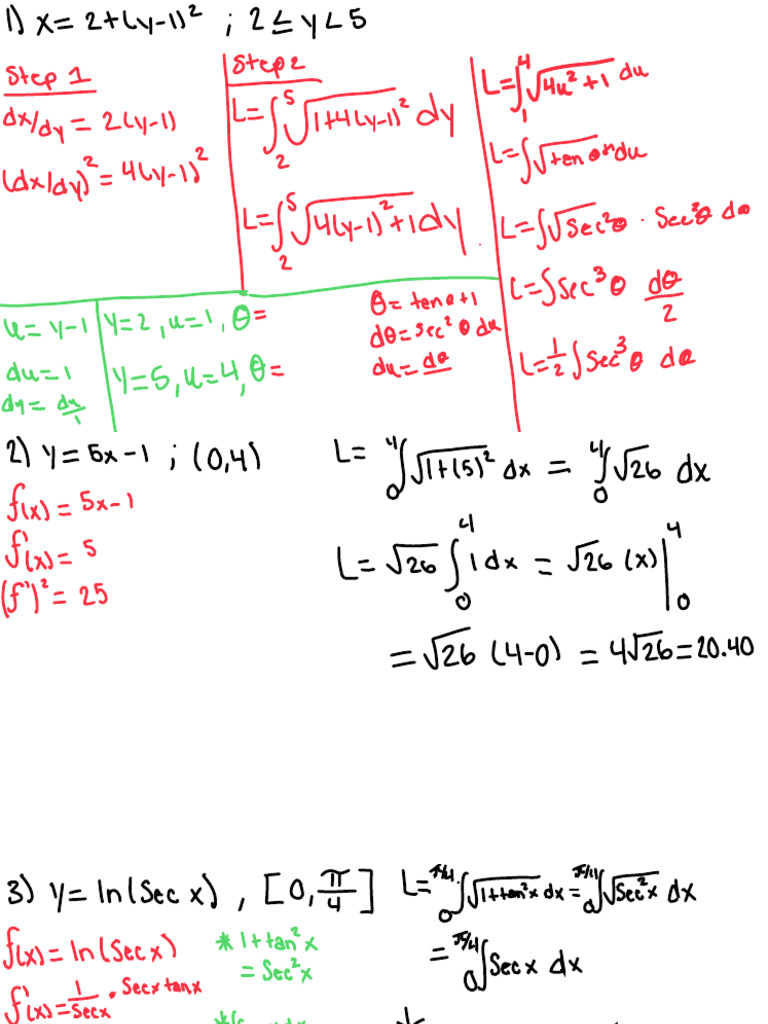 1) x = 2+(y-1)² ; 2 ≤ y < 5
Step 1
dx/dy = 2(y-1)
(dx/dy)² = 4(y-1)²
Step 2
L = ∫₂⁵ √(1+4(y-1)²) dy
L = ∫₂⁵ √(4(y-1)²+1) dy
L = ∫₁⁴ √(4u²+1) du
L = ∫√sec²θ · sec²θ dθ
L = ∫sec³θ dθ/2
L = 1/2 ∫ sec³θ dθ
u = y-1
du = 1
y=2, u=1, θ=
y=5, u=4, θ=
θ = tanθ+1
dθ = sec²θ du
2) y = 5x-1 ; (0,4)
f(x) = 5x-1
f'(x) = 5
(f')² = 25
L = ∫₀⁴ √(1+(5)²) dx = ∫₀⁴ √26 dx
L = √26 ∫₀⁴ 1 dx = √26 (x)|₀⁴
= √26 (4-0) = 4√26 = 20.40
3) y = ln(sec x), [0, π/4]
f(x) = ln(sec x)
f'(x) = 1/secx · secx tanx
*1+tan²x
= sec²x
L = ∫₀^π/4 √(1+tan²x) dx = ∫₀^π/4 √(sec²x) dx
= ∫₀^π/4 sec x dx